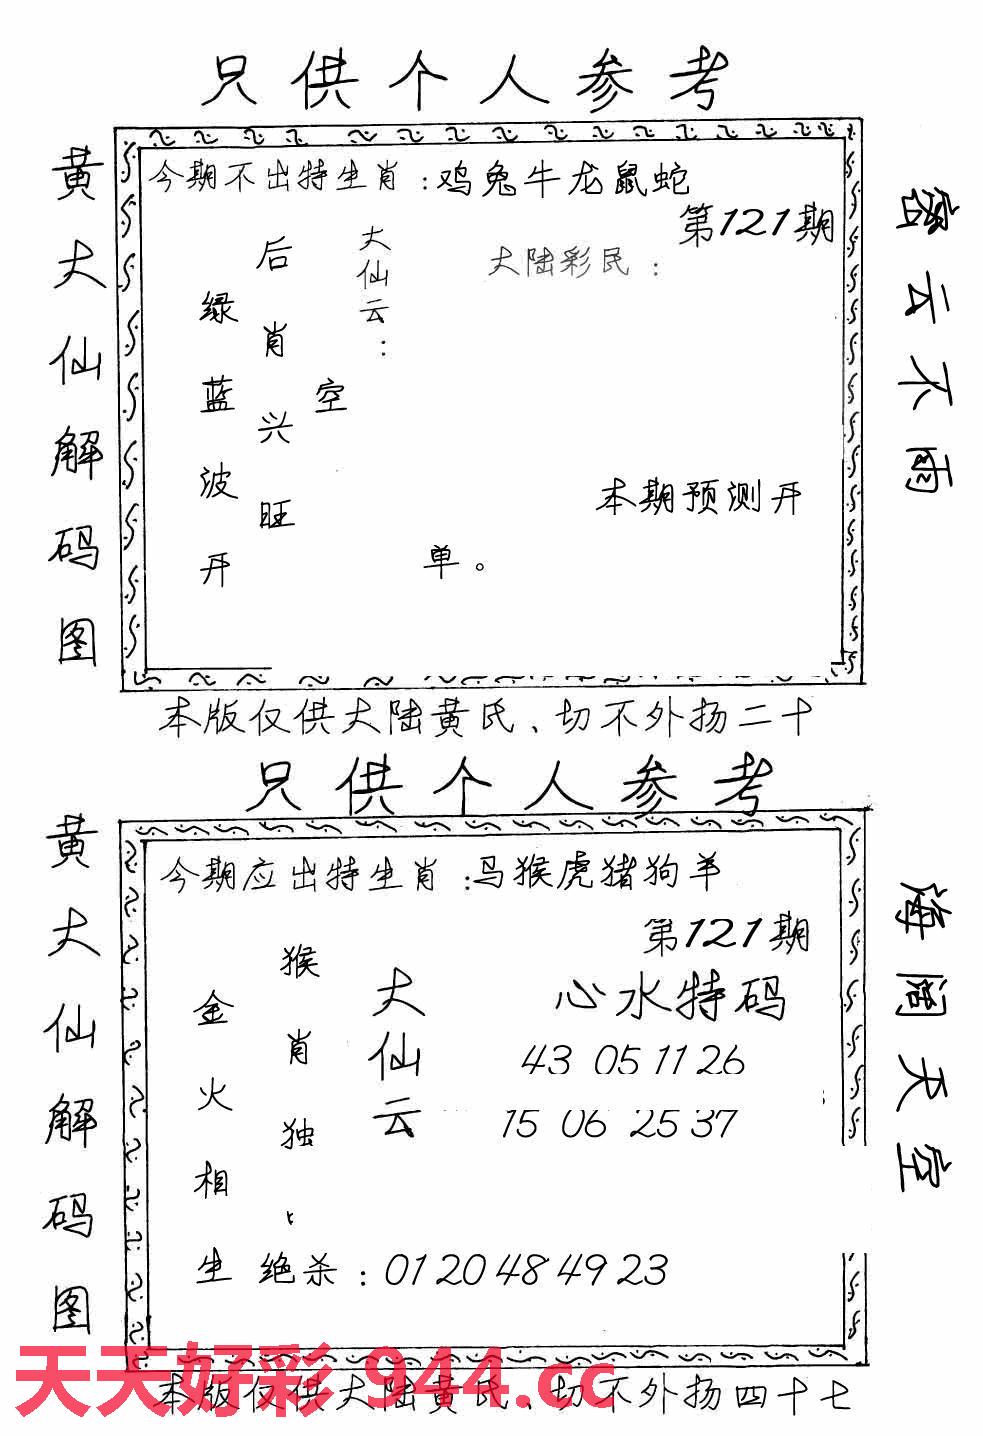 只供个人参考
黄大仙解码图
今期不出特生肖:鸡兔牛龙鼠蛇
第121期
大陆彩民:
大仙云:
后肖兴旺
空
绿蓝波开
单。
本期预测开
密云不雨
本版仅供大陆黄氏、切不外扬二十
只供个人参考
黄大仙解码图
今期应出特生肖:马猴虎猪狗羊
第121期
心水特码
大仙云
43 05 11 26
15 06 25 37
猴肖独
金火相生
绝杀:01 20 48 49 23
海阔天空
天天好彩 944.cc
本版仅供大陆黄氏、切不外扬四十七